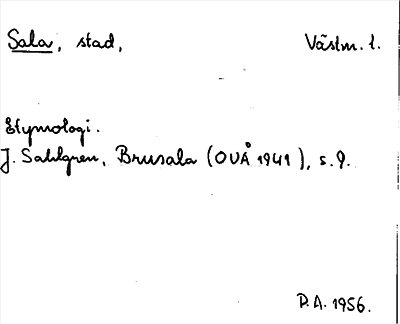 Sala, stad, Västm. l.
Etymologi.
J. Sahlgren, Brusala (OUÅ 1941), s. 9.
D.A. 1956.